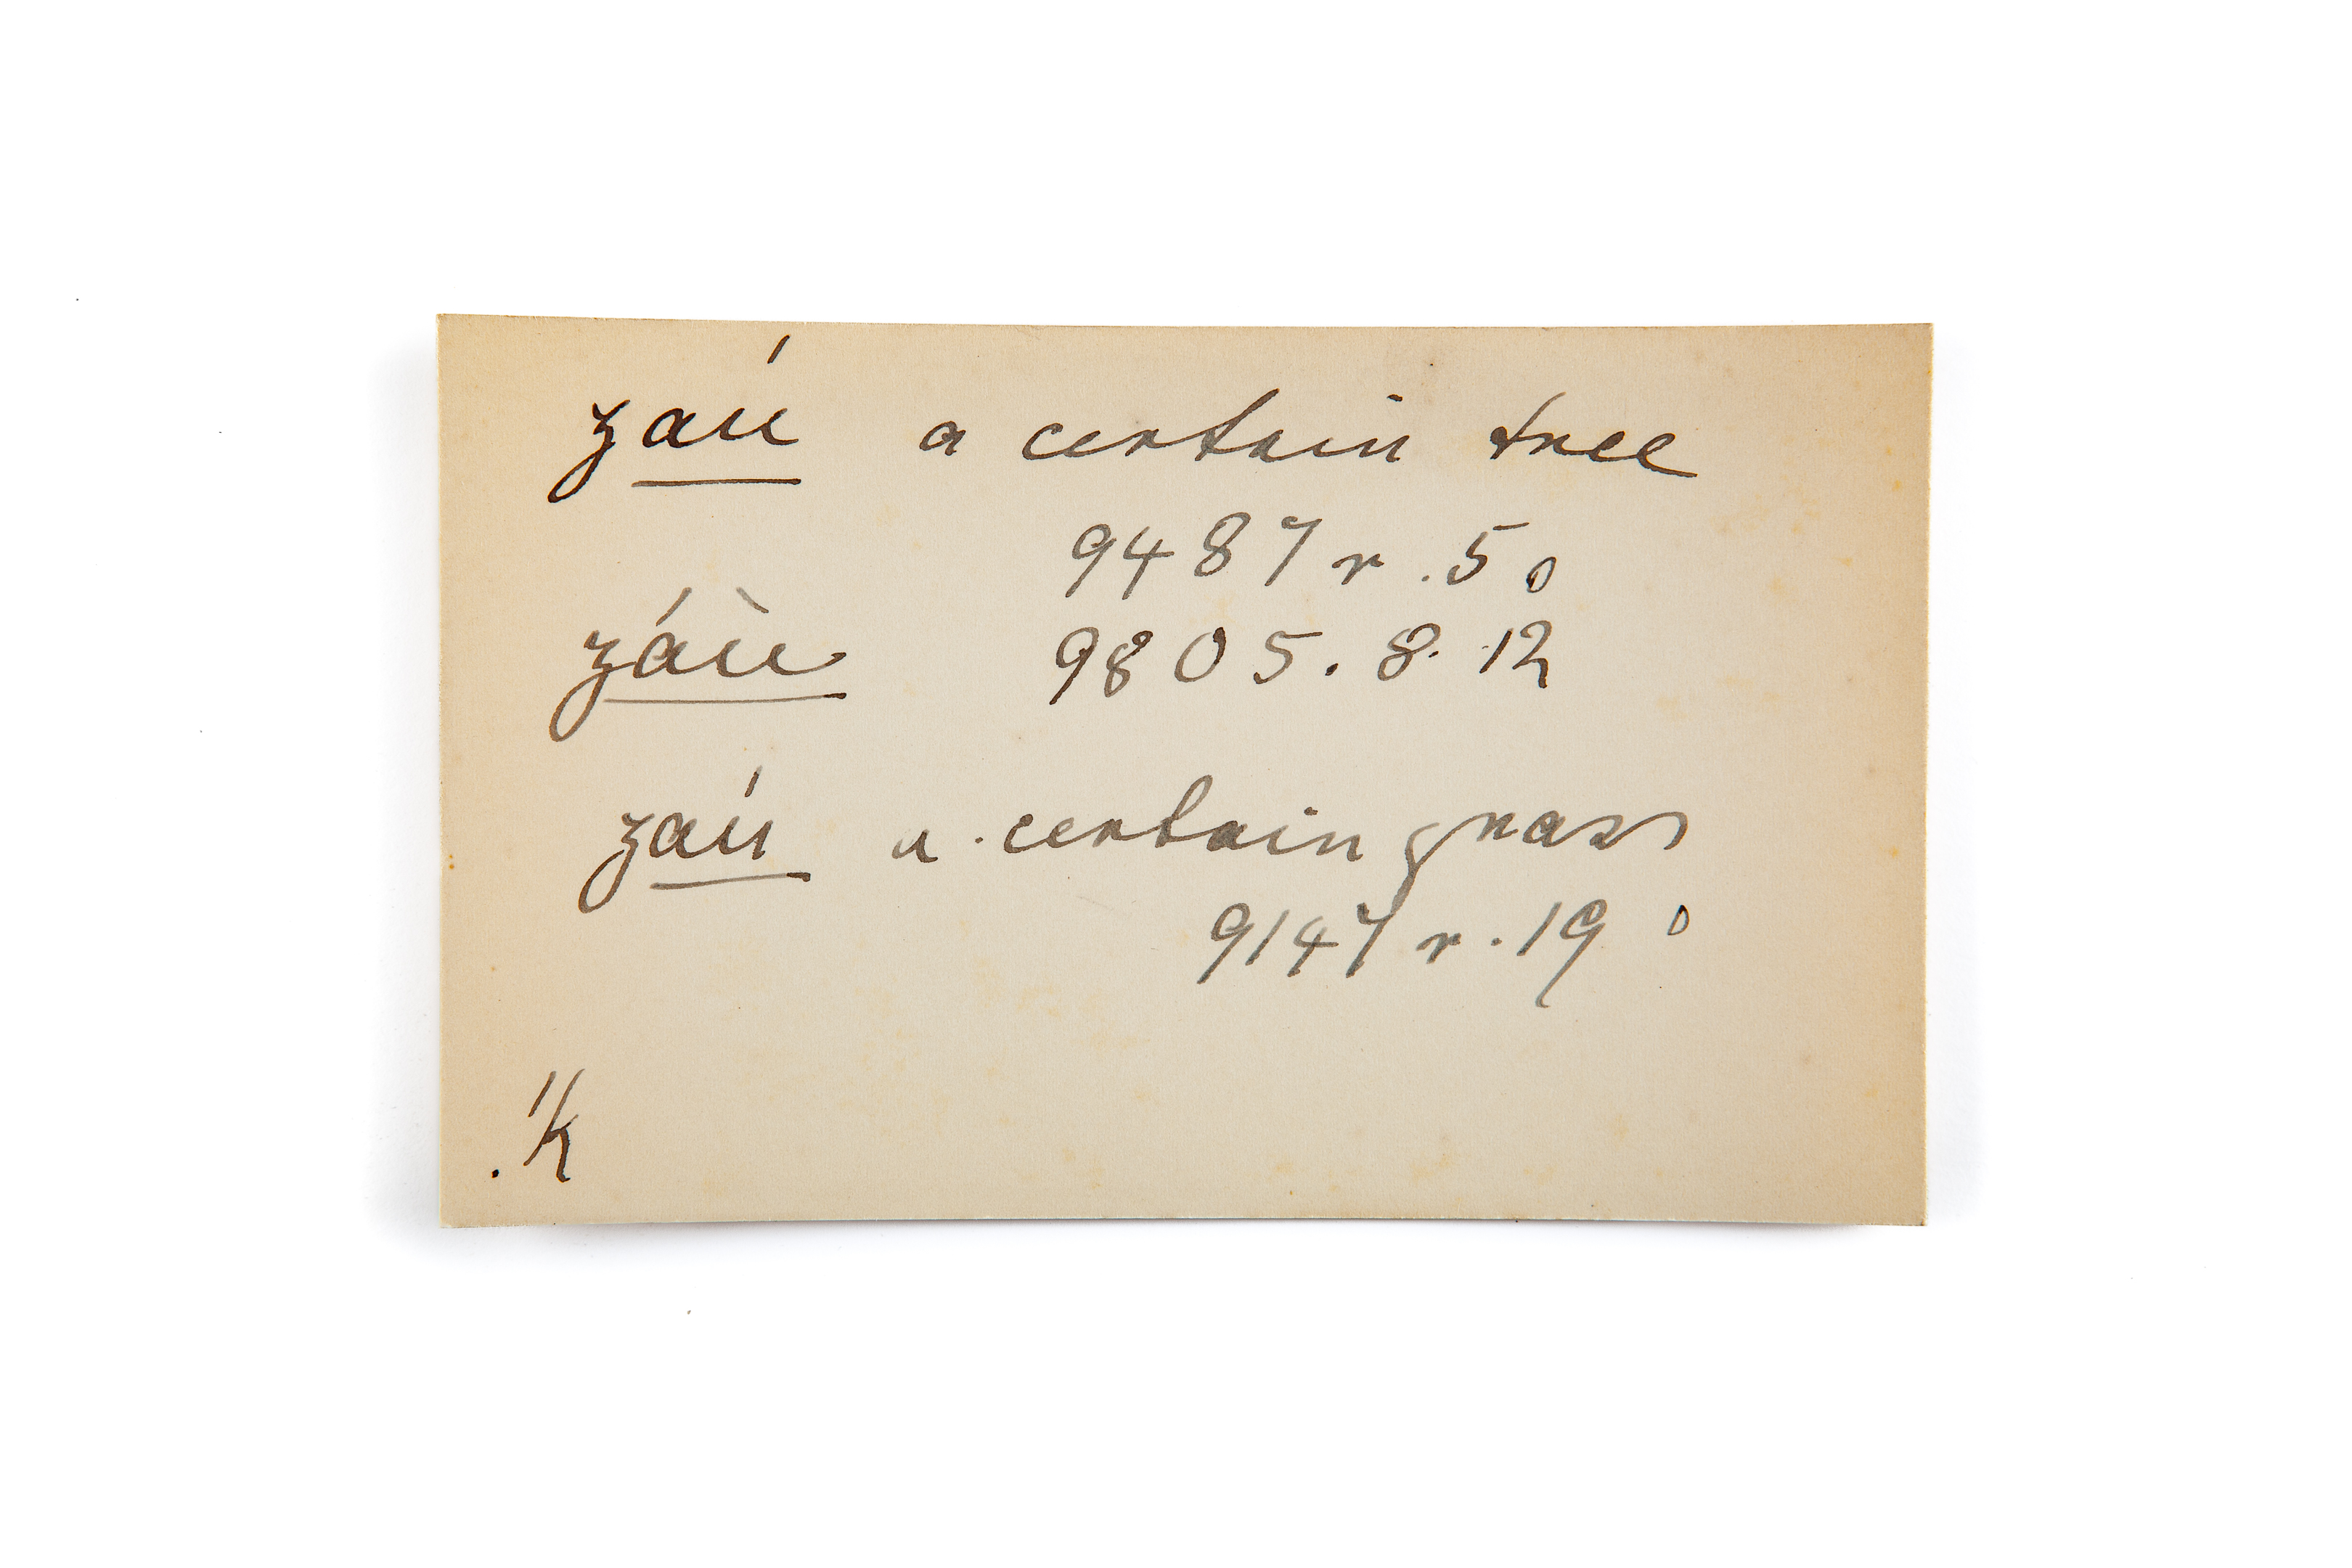 zaú a certain tree
9487 r. 5 0
záù 9805. 8. 12
zaú a certain grass
9147 r. 19 0
.'K